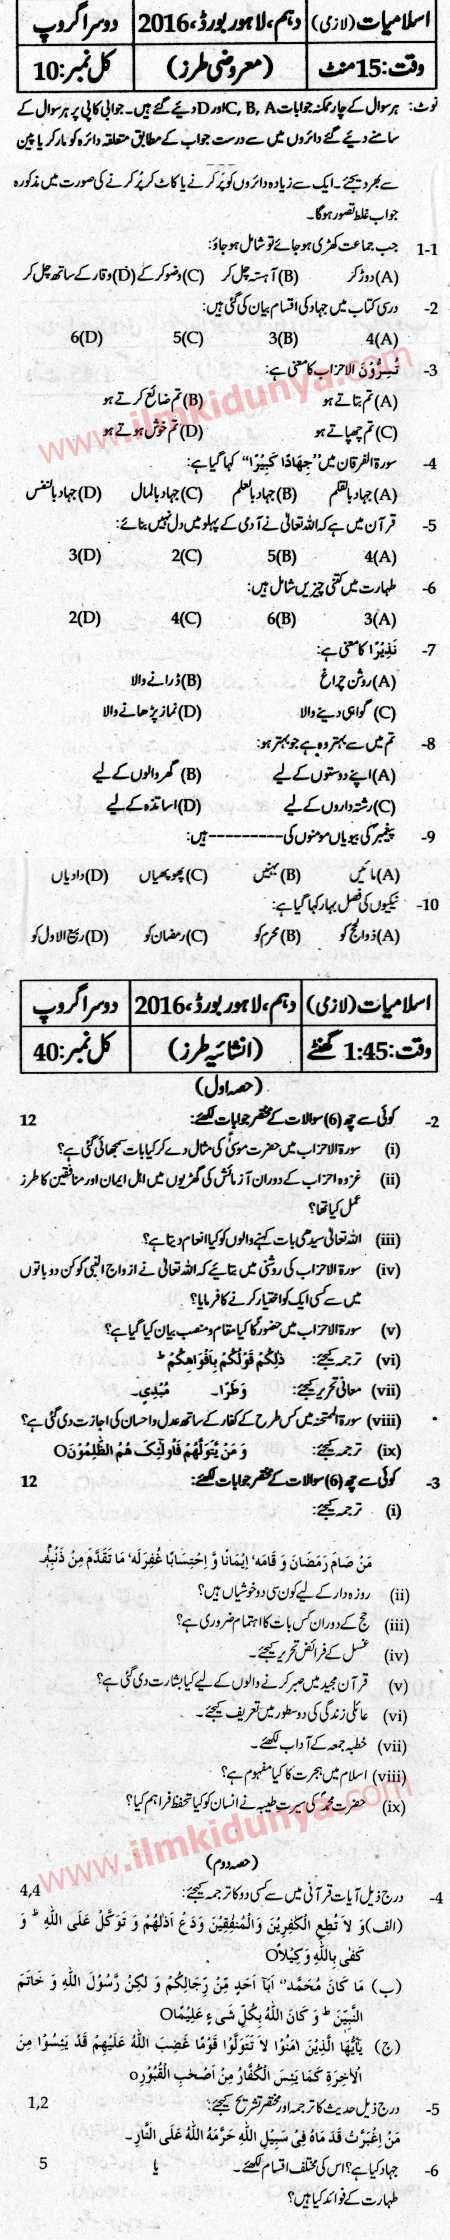 اسلامیات (لازمی) دہم، لاہور بورڈ، 2016 دوسرا گروپ
وقت: 15 منٹ (معروضی طرز) کل نمبر: 10
نوٹ: ہر سوال کے چار ممکنہ جوابات C, B, A اور D دیئے گئے ہیں۔ جوابی کاپی پر ہر سوال کے
سامنے دیئے گئے دائروں میں سے درست جواب کے مطابق متعلقہ دائرہ کو مارکر یا پین
سے بھر دیجئے۔ ایک سے زیادہ دائروں کو پُر کرنے یا کاٹ کر پُر کرنے کی صورت میں مذکورہ
جواب غلط تصور ہوگا۔
1-1 جب جماعت کھڑی ہو جائے تو شامل ہو جاؤ:
(A) دوڑ کر (B) آہستہ چل کر (C) وضو کر کے (D) وقار کے ساتھ چل کر
2- درسی کتاب میں جہاد کی اقسام بیان کی گئی ہیں:
4(A) 3(B) 5(C) 6(D)
3- تُسِرُّوْنَ الاحزاب کا معنی ہے:
(A) تم بتاتے ہو (B) تم ضائع کرتے ہو
(C) تم چھپاتے ہو (D) تم خوش ہوتے ہو
www.ilmkidunya.com
4- سورۃ الفرقان میں "جِهَادًا كَبِيْرًا" کہا گیا ہے:
(A) جہاد بالقلم (B) جہاد بالعلم (C) جہاد بالمال (D) جہاد بالنفس
5- قرآن میں ہے کہ اللہ تعالیٰ نے آدمی کے پہلو میں دل نہیں بنائے:
4(A) 5(B) 2(C) 3(D)
6- طہارت میں کتنی چیزیں شامل ہیں:
3(A) 6(B) 4(C) 2(D)
7- نَذِيْرًا کا معنی ہے:
(A) روشن چراغ (B) ڈرانے والا
(C) گواہی دینے والا (D) نماز پڑھانے والا
8- تم میں سے بہتر وہ ہے جو بہتر ہو:
(A) اپنے دوستوں کے لیے (B) گھر والوں کے لیے
(C) رشتہ داروں کے لیے (D) اساتذہ کے لیے
9- پیغمبر کی بیویاں مومنوں کی ---------- ہیں:
(A) مائیں (B) بہنیں (C) پھوپھیاں (D) دادیاں
10- نیکیوں کی فصل بہار کہا گیا ہے:
(A) ذوالحج کو (B) محرم کو (C) رمضان کو (D) ربیع الاول کو
اسلامیات (لازمی) دہم، لاہور بورڈ، 2016 دوسرا گروپ
وقت: 1:45 گھنٹے (انشائیہ طرز) کل نمبر: 40
(حصہ اول)
2- کوئی سے چھ (6) سوالات کے مختصر جوابات لکھئے: 12
(i) سورۃ الاحزاب میں حضرت موسیٰؑ کی مثال دے کر کیا بات سمجھائی گئی ہے؟
(ii) غزوہ احزاب کے دوران آزمائش کی گھڑیوں میں اہل ایمان اور منافقین کا طرز
عمل کیا تھا؟
(iii) اللہ تعالیٰ سیدھی بات کہنے والوں کو کیا انعام دیتا ہے؟
(iv) سورۃ الاحزاب کی روشنی میں بتائیے کہ اللہ تعالیٰ نے ازواج النبی کو کن دو باتوں
میں سے کسی ایک کو اختیار کرنے کا فرمایا؟
(v) سورۃ الاحزاب میں حضورؐ کا کیا مقام و منصب بیان کیا گیا ہے؟
(vi) ترجمہ کیجئے: ذٰلِكُمْ قَوْلُكُمْ بِاَفْوَاهِكُمْ ط
(vii) معانی تحریر کیجئے: وَطَرًا۔ مُبْدِيْ۔
(viii) سورۃ الممتحنہ میں کس طرح کے کفار کے ساتھ عدل و احسان کی اجازت دی گئی ہے؟
(ix) ترجمہ کیجئے: وَ مَنْ يَّتَوَلَّهُمْ فَاُولٰٓئِكَ هُمُ الظّٰلِمُوْنَO
3- کوئی سے چھ (6) سوالات کے مختصر جوابات لکھئے: 12
(i) ترجمہ کیجئے:
مَنْ صَامَ رَمَضَانَ وَ قَامَهٗ اِيْمَانًا وَّ اِحْتِسَابًا غُفِرَلَهٗ مَا تَقَدَّمَ مِنْ ذَنْبِهٖ
(ii) روزہ دار کے لیے کون سی دو خوشیاں ہیں؟
(iii) حج کے دوران کس بات کا اہتمام ضروری ہے؟
(iv) غسل کے فرائض تحریر کیجئے۔
(v) قرآن مجید میں صبر کرنے والوں کے لیے کیا بشارت دی گئی ہے؟
(vi) عائلی زندگی کی دو سطور میں تعریف کیجئے۔
(vii) خطبہ جمعہ کے آداب لکھئے۔
(viii) اسلام میں ہجرت کا کیا مفہوم ہے؟
(ix) حضرت محمدؐ کی سیرت طیبہ نے انسان کو کیا تحفظ فراہم کیا؟
www.ilmkidunya.com
(حصہ دوم)
4- درج ذیل آیات قرآنی میں سے کسی دو کا ترجمہ کیجئے: 4,4
(الف) وَ لَا تُطِعِ الْكٰفِرِيْنَ وَالْمُنٰفِقِيْنَ وَدَعْ اَذٰىهُمْ وَ تَوَكَّلْ عَلَى اللّٰهِ ط وَ
كَفٰى بِاللّٰهِ وَكِيْلًاO
(ب) مَا كَانَ مُحَمَّدٌ اَبَآ اَحَدٍ مِّنْ رِّجَالِكُمْ وَ لٰكِنْ رَّسُوْلَ اللّٰهِ وَ خَاتَمَ
النَّبِيّٖنَ ط وَ كَانَ اللّٰهُ بِكُلِّ شَيْءٍ عَلِيْمًاO
(ج) يٰٓاَيُّهَا الَّذِيْنَ اٰمَنُوْا لَا تَتَوَلَّوْا قَوْمًا غَضِبَ اللّٰهُ عَلَيْهِمْ قَدْ يَئِسُوْا مِنَ
الْاٰخِرَةِ كَمَا يَئِسَ الْكُفَّارُ مِنْ اَصْحٰبِ الْقُبُوْرِO
5- درج ذیل حدیث کا ترجمہ اور مختصر تشریح کیجئے: 1,2
مَنِ اغْبَرَّتْ قَدَمَاهُ فِيْ سَبِيْلِ اللّٰهِ حَرَّمَهُ اللّٰهُ عَلَى النَّارِ۔
6- جہاد کیا ہے؟ اس کی مختلف اقسام لکھئے۔ یا 5
طہارت کے فوائد کیا ہیں؟